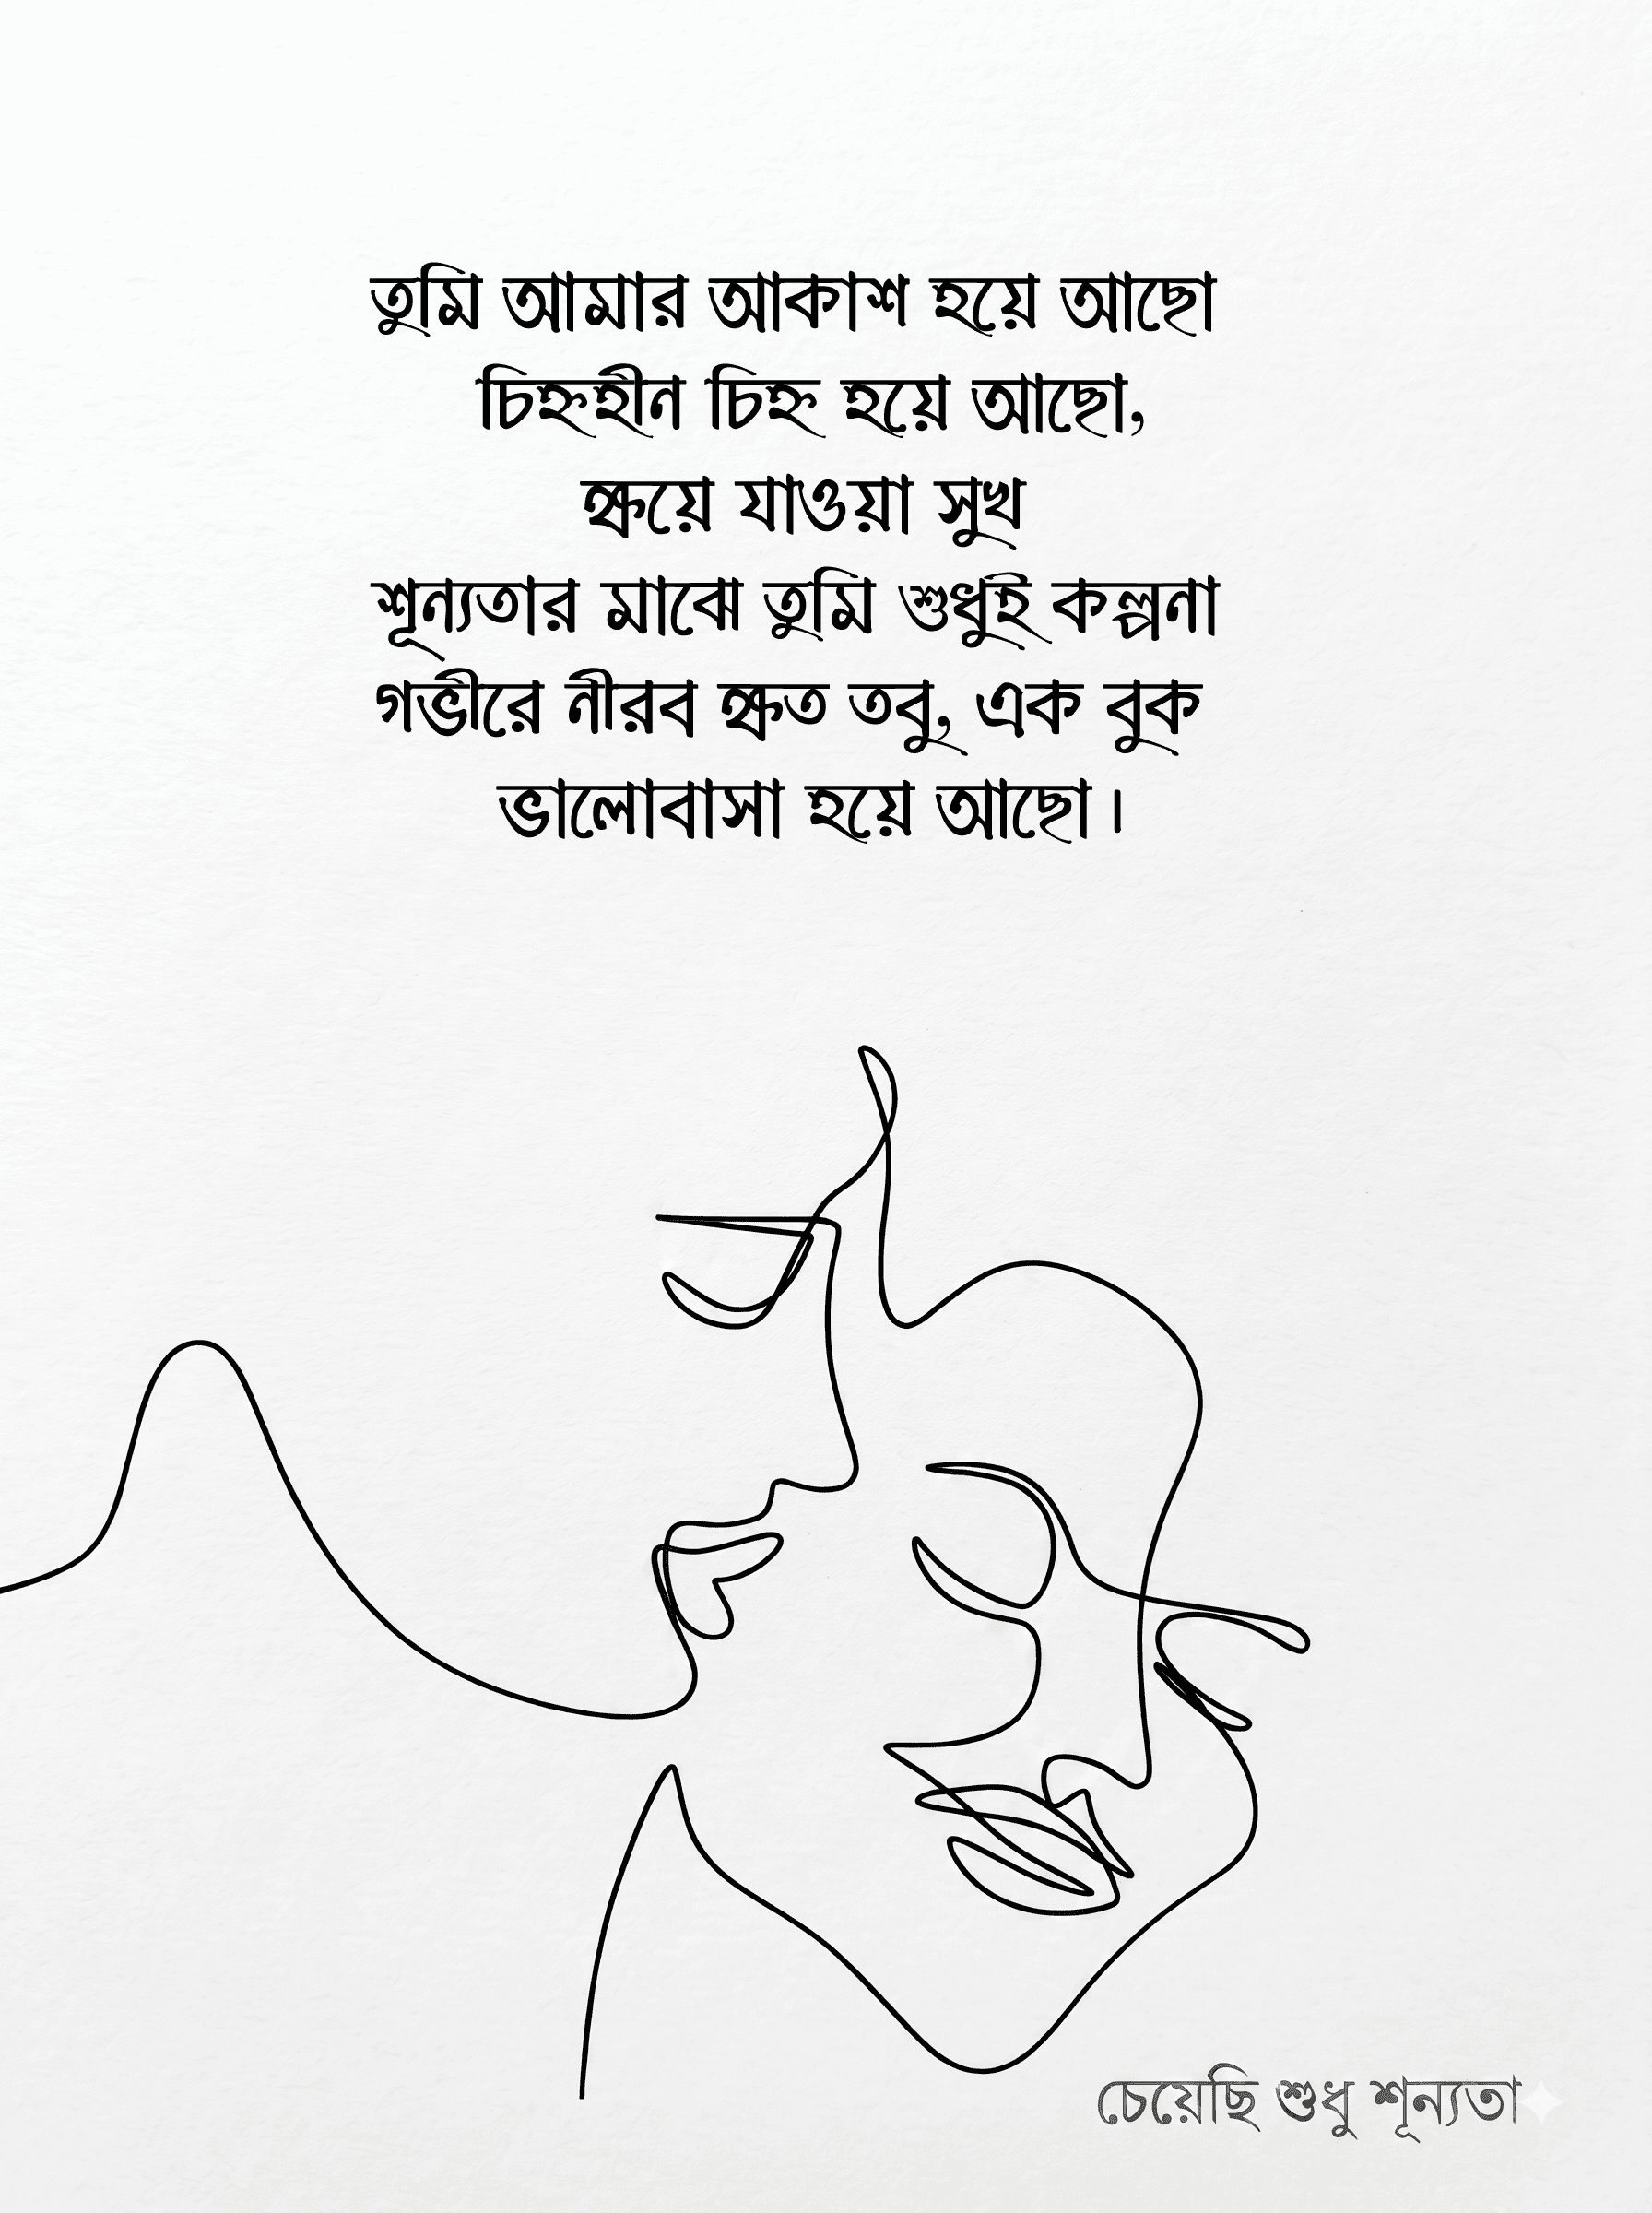 তুমি আমার আকাশ হয়ে আছো
চিহ্নহীন চিহ্ন হয়ে আছো,
ক্ষয়ে যাওয়া সুখ
শূন্যতার মাঝে তুমি শুধুই কল্পনা
গভীরে নীরব ক্ষত তবু, এক বুক
ভালোবাসা হয়ে আছো।
চেয়েছি শুধু শূন্যতা